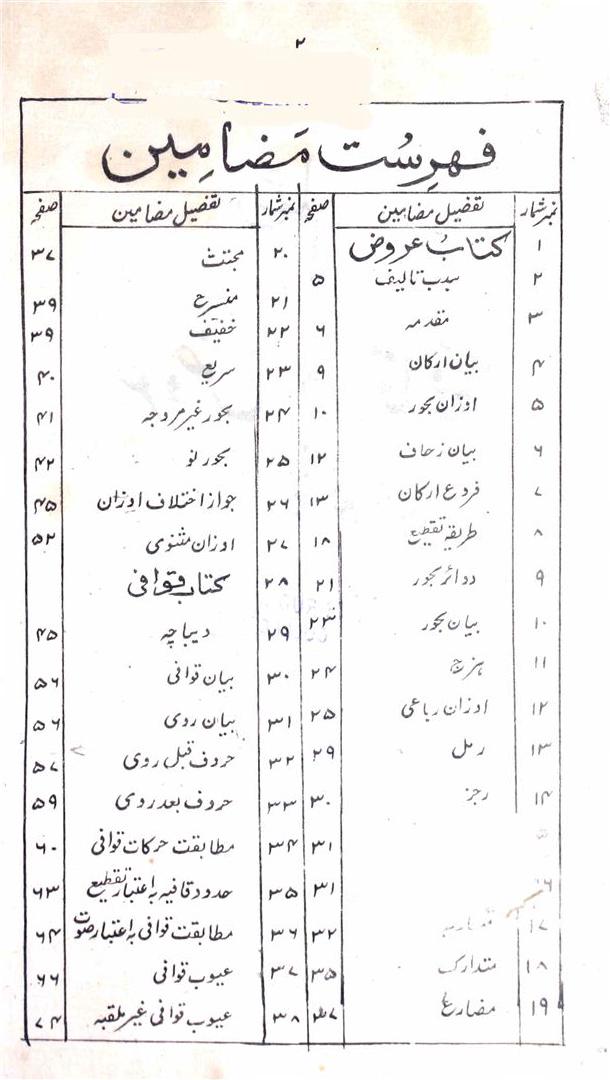 ۲
فہرست مضامین
نمبر شمار تفصیل مضامین صفحہ
۱ کتاب عروض
۲ سبب تالیف ۵
۳ مقدمہ ۶
۴ بیان ارکان ۹
۵ اوزان بحور ۱۰
۶ بیان زحاف ۱۲
۷ فروع ارکان ۱۳
۸ طریقہ تقطیع ۱۸
۹ دوائر بحور ۲۱
۱۰ بیان بحور ۲۳
۱۱ ہزج ۲۴
۱۲ اوزان رباعی ۲۵
۱۳ رمل ۲۹
۱۴ رجز ۳۰
۳۱
۳۱
۱۷ ۳۲
۱۸ متدارک ۳۵
۱۹ مضارع ۳۷
نمبر شمار تفصیل مضامین صفحہ
۲۰ مجتث ۳۷
۲۱ منسرح ۳۹
۲۲ خفیف ۳۹
۲۳ سریع ۴۰
۲۴ بحور غیر مروجہ ۴۱
۲۵ بحور نو ۴۲
۲۶ جواز اختلاف اوزان ۴۵
۲۷ اوزان مثنوی ۵۲
۲۸ کتاب قوافی
۲۹ دیباچہ ۴۵
۳۰ بیان قوافی ۵۶
۳۱ بیان روی ۵۶
۳۲ حروف قبل روی ۵۷
۳۳ حروف بعد روی ۵۹
۳۴ مطابقت حرکات قوافی ۶۰
۳۵ حدود قافیہ باعتبار تقطیع ۶۳
۳۶ مطابقت قوافی باعتبار صوت ۶۴
۳۷ عیوب قوافی ۶۶
۳۸ عیوب قوافی غیر ملقبہ ۷۴